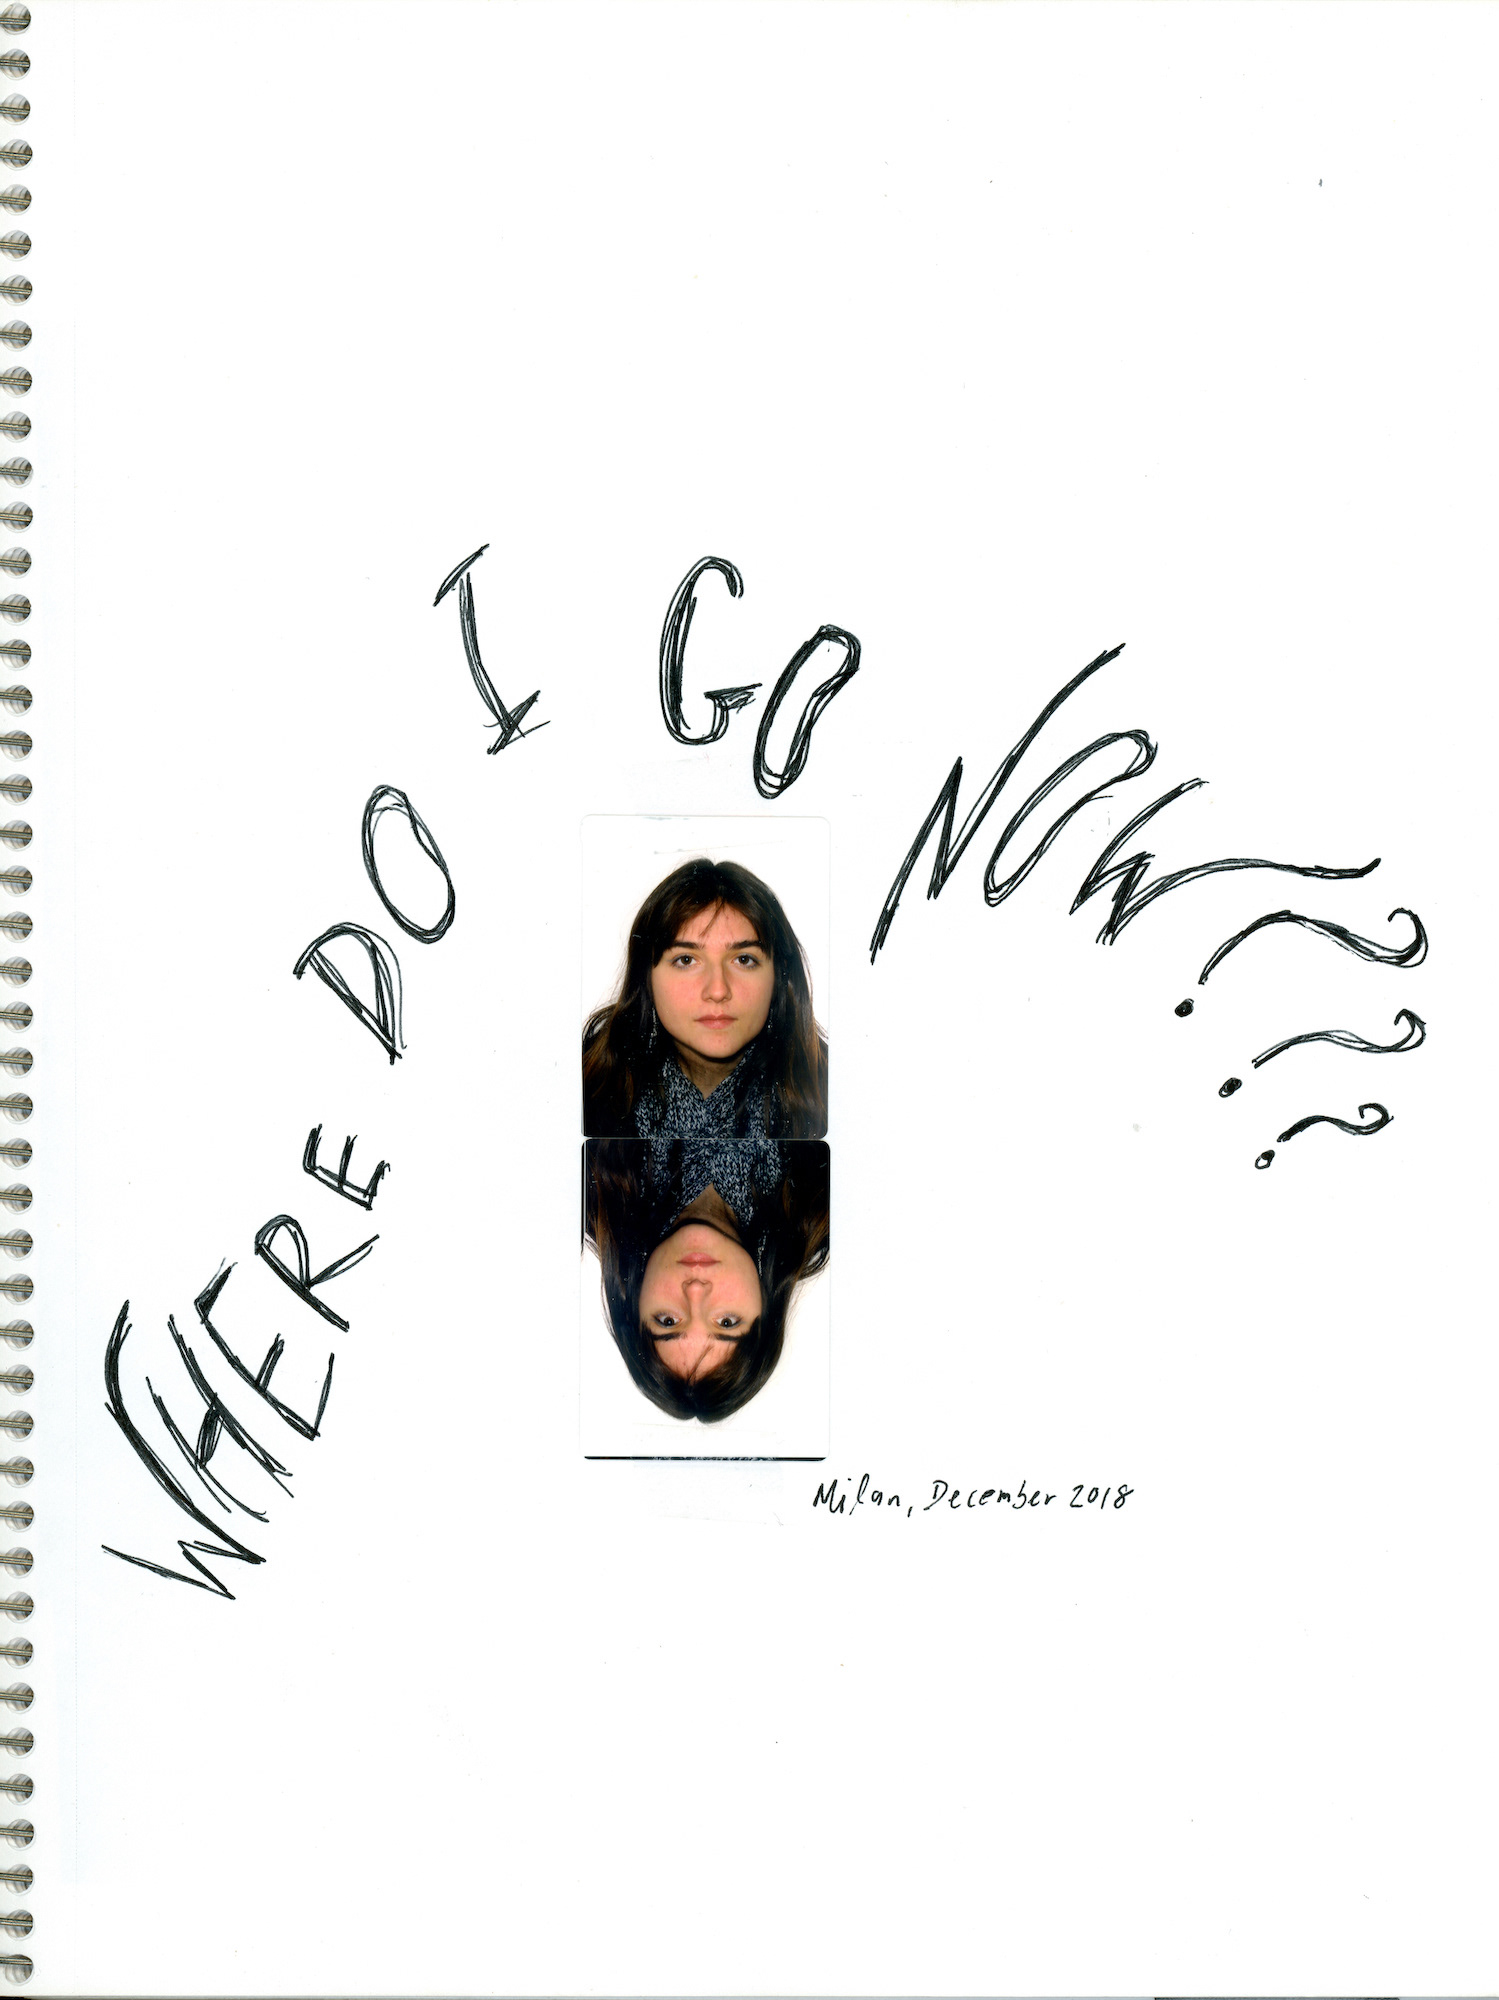 WHERE DO I GO NOW???
Milan, December 2018